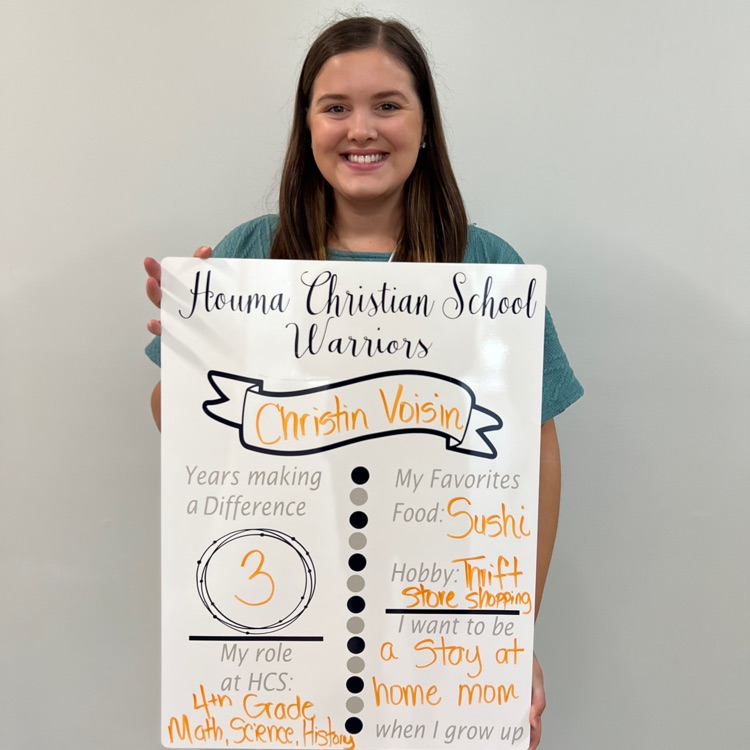 Houma Christian School
Warriors
Christin Voisin
Years making
a Difference
3
My role
at HCS:
4th Grade
Math, Science, History
My Favorites
Food: Sushi
Hobby: Thrift
store shopping
I want to be
a stay at
home mom
when I grow up